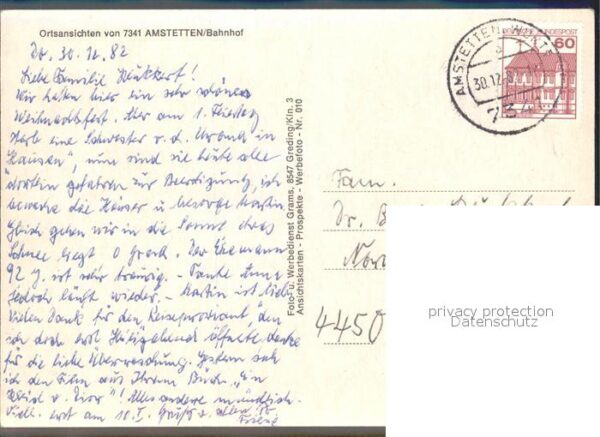 Ortsansichten von 7341 AMSTETTEN/Bahnhof
Do. 30.12.82
Liebe Familie
Wir hatten hier ein sehr schönes
Weihnachtsfest. Aber am 1. Feiertag
starb eine Schwester v. d. in
Hausen", nun sind sie heute alle
dorthin gefahren zur Beerdigung, ich
bewache die Häuser u. besorge Martin
Gleich gehen wir in die Sonne, etwas
Schnee liegt 0 Grad. Der Ehemann
92 J. ist sehr traurig. - Tante
jedoch läuft wieder. - Martin ist lieb
Vielen Dank für den Reiseproviant, den
ich doch erst öffnete, danke
für die liebe Überraschung. Gestern sah
ich den Film aus Ihrem Buch: "Ein
Kleid v. Dior"! Alles andere mündlich.
Viell. erst am 10.I. Grüße
Foto- u. Werbedienst Grams, 8547 Greding/Kin. 3
Ansichtskarten - Prospekte - Werbefoto - Nr. 010
AMSTETTEN, WÜRTT
30.12.
73
DEUTSCHE BUNDESPOST
60
Fam.
Dr.
4450
privacy protection
Datenschutz